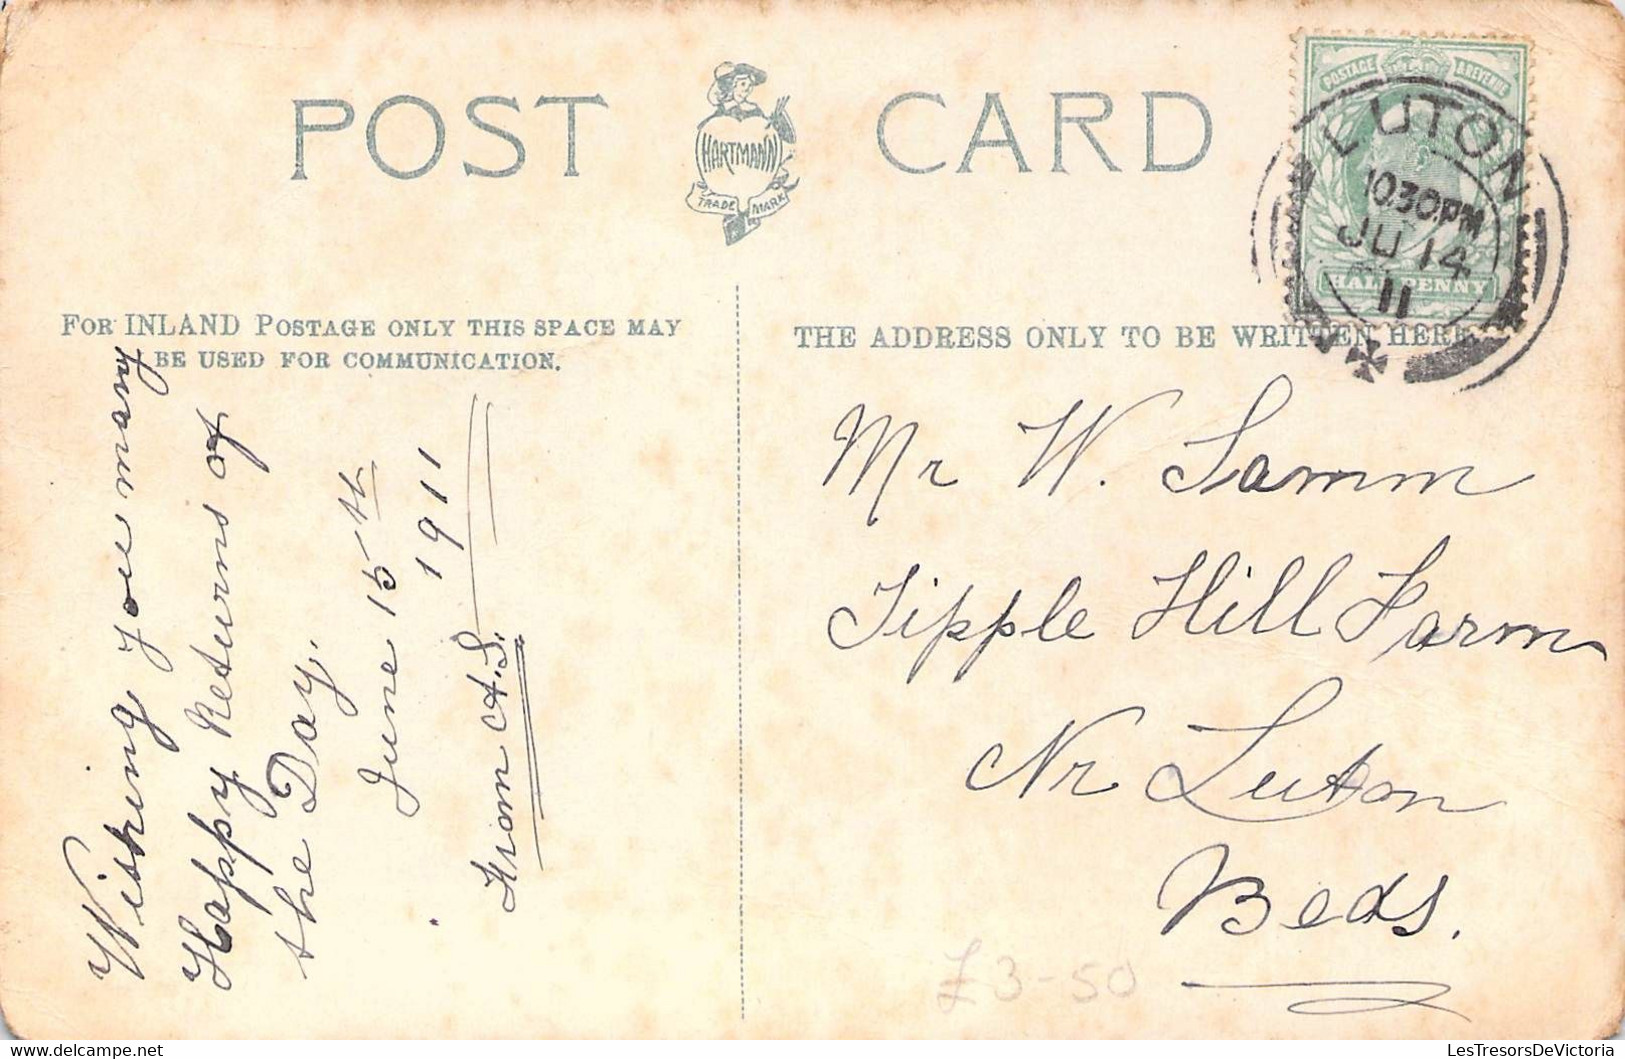 POST CARD
HARTMANN
TRADE MARK
POSTAGE & REVENUE
HALFPENNY
LUTON
10.30PM
JU 14
11
FOR INLAND POSTAGE ONLY THIS SPACE MAY
BE USED FOR COMMUNICATION.
THE ADDRESS ONLY TO BE WRITTEN HERE
Wishing you many
Happy Returns of
the Day.
June 15th
1911
From A.S.
Mr W. Samm
Tipple Hill Farm
Nr Luton
Beds.
£3-50
LesTresorsDeVictoria